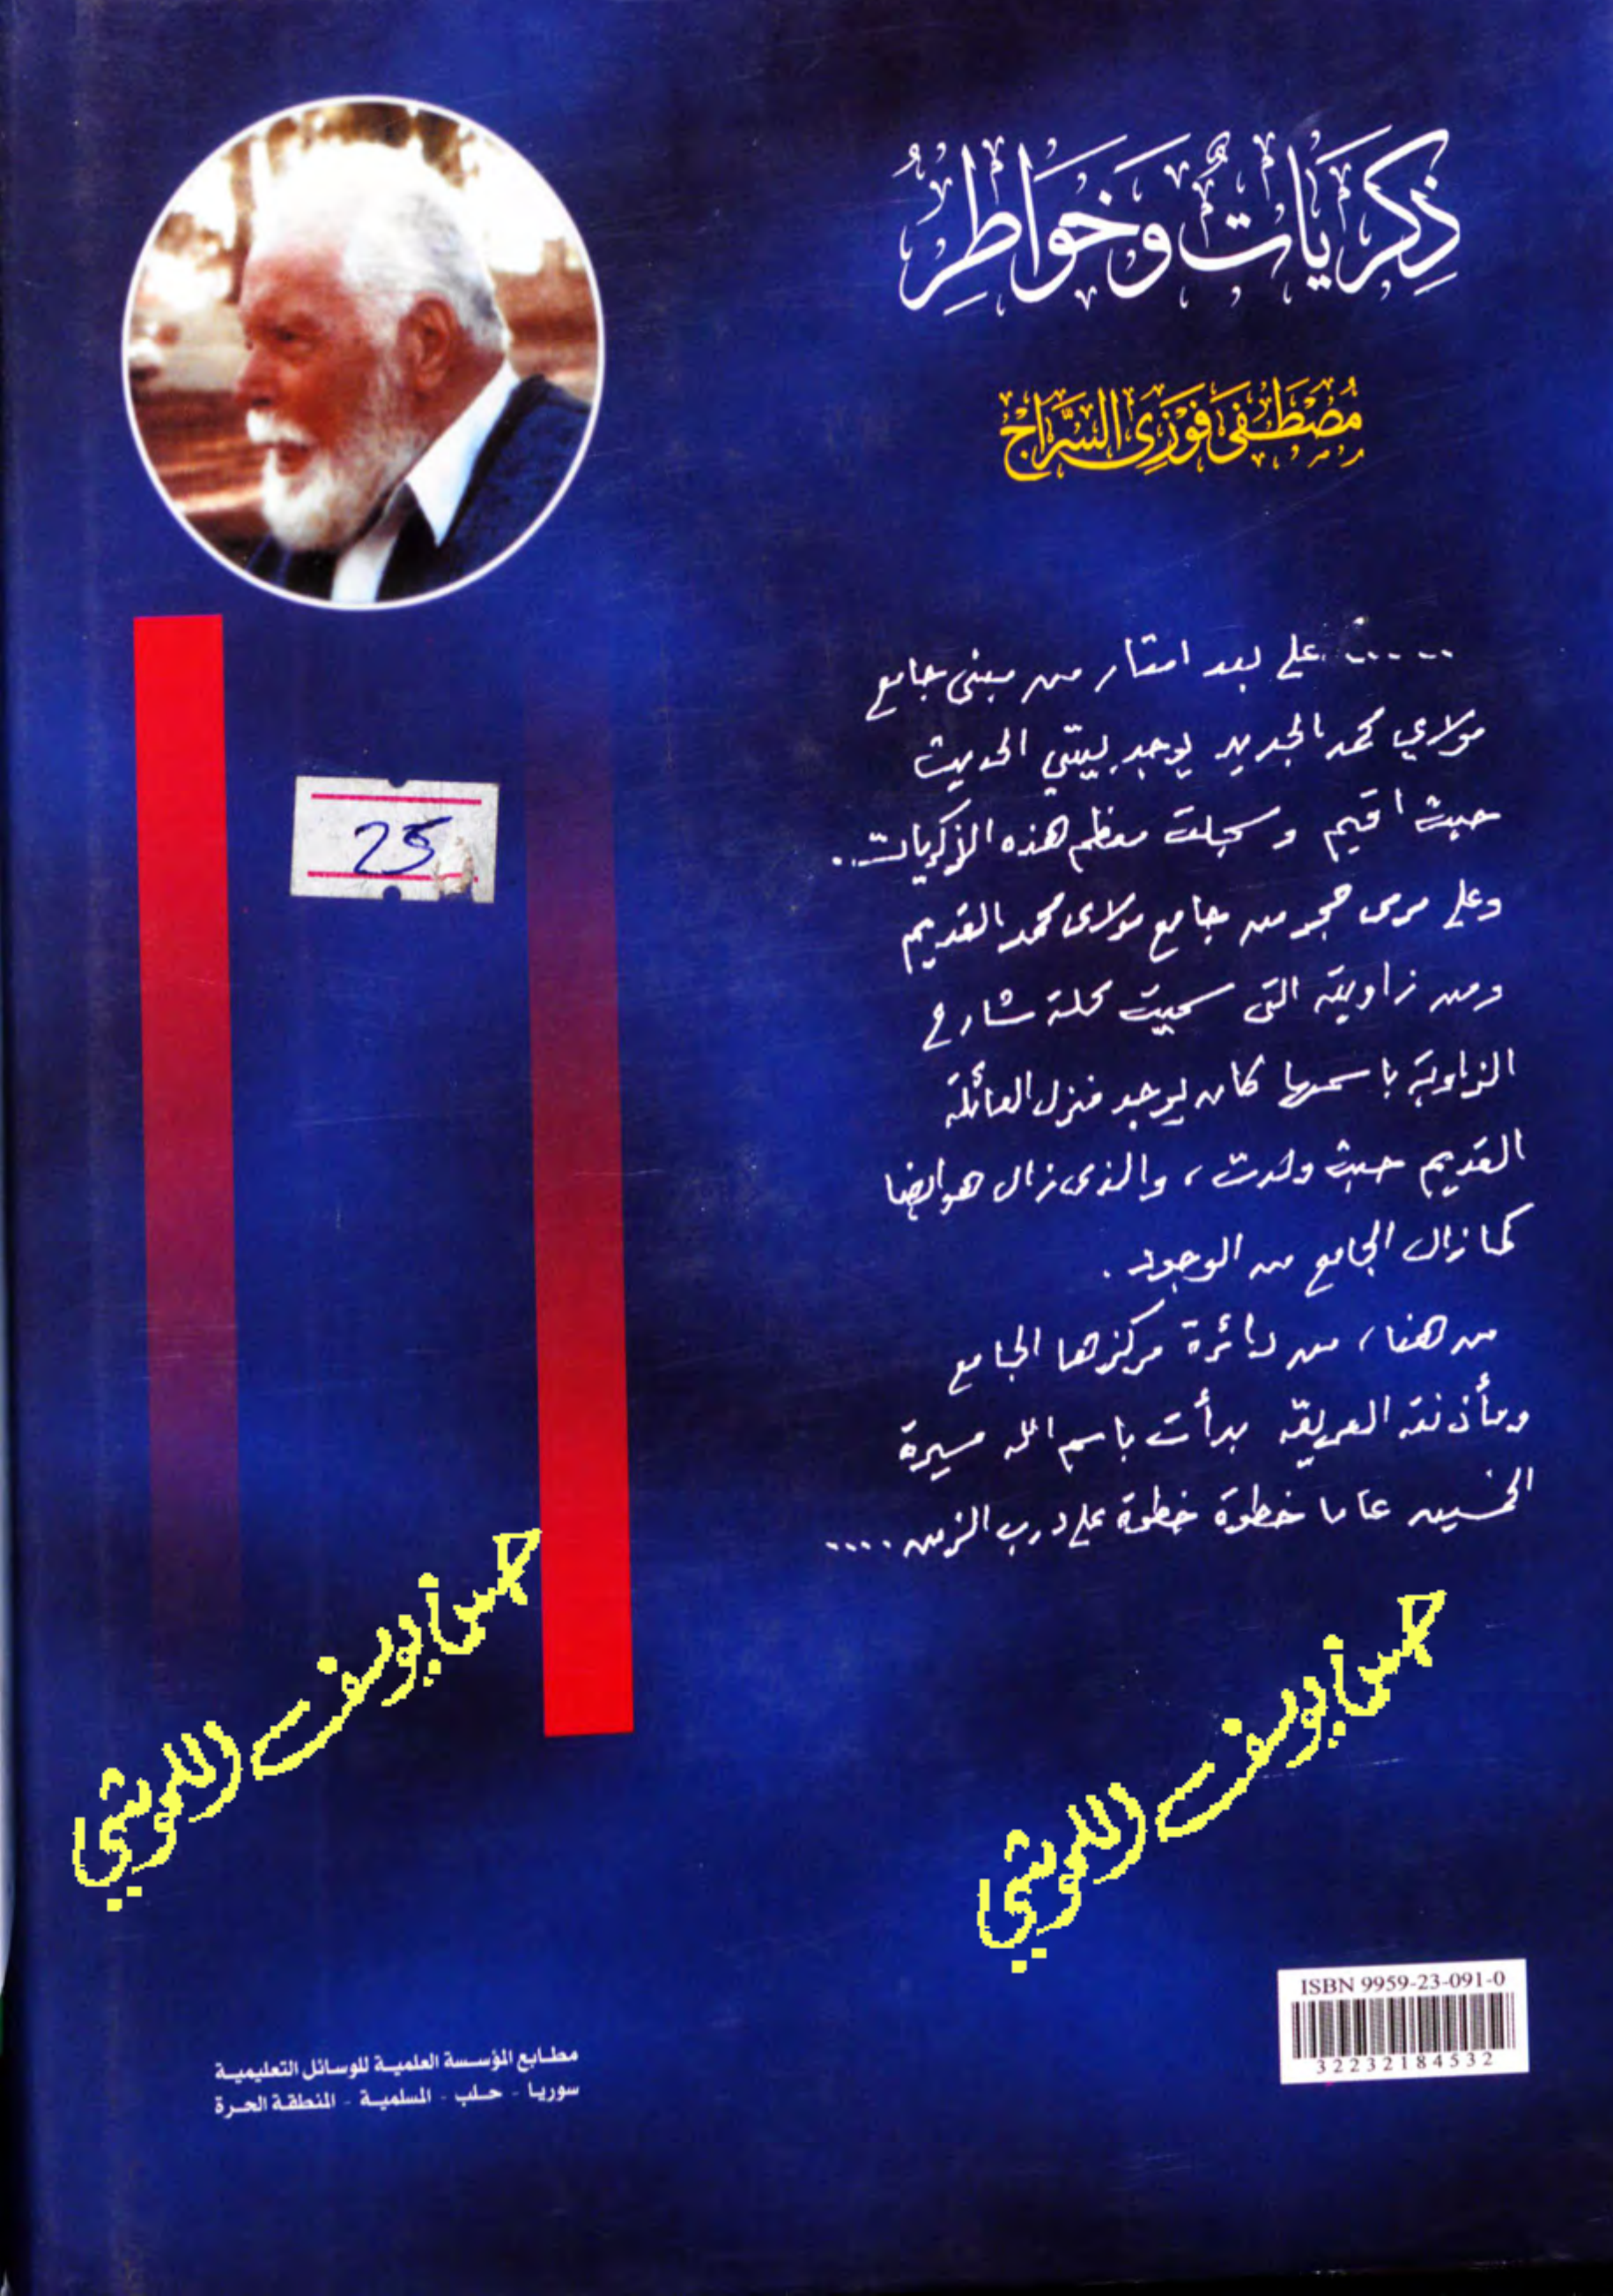 ذِكرَيَاتٌ وَخَوَاطِرُ
مُصْطَفَى فَوْزِي السَّرَّاجْ
..... على بعد امتار من مبنى جامع
مولاي محمد الجديد يوجد بيتي الحديث
حيث اقيم وسجلت معظم هذه الذكريات..
وعلى مرمى حجر من جامع مولاى محمد القديم
ومن زاويته التى سميت محلة شارع
الزاوية باسمها كان يوجد منزل العائلة
القديم حيث ولدت ، والذى زال هو ايضا
كما زال الجامع من الوجود .
من هنا ، من دائرة مركزها الجامع
ومأذنته العريقه بدأت باسم الله مسيرة
الخمسين عاما خطوة خطوة على درب الزمن ....
25
حسن يوسف اللموشي
حسن يوسف اللموشي
ISBN 9959-23-091-0
32232184532
مطابع المؤسسة العلمية للوسائل التعليمية
سوريا - حلب - المسلمية - المنطقة الحرة